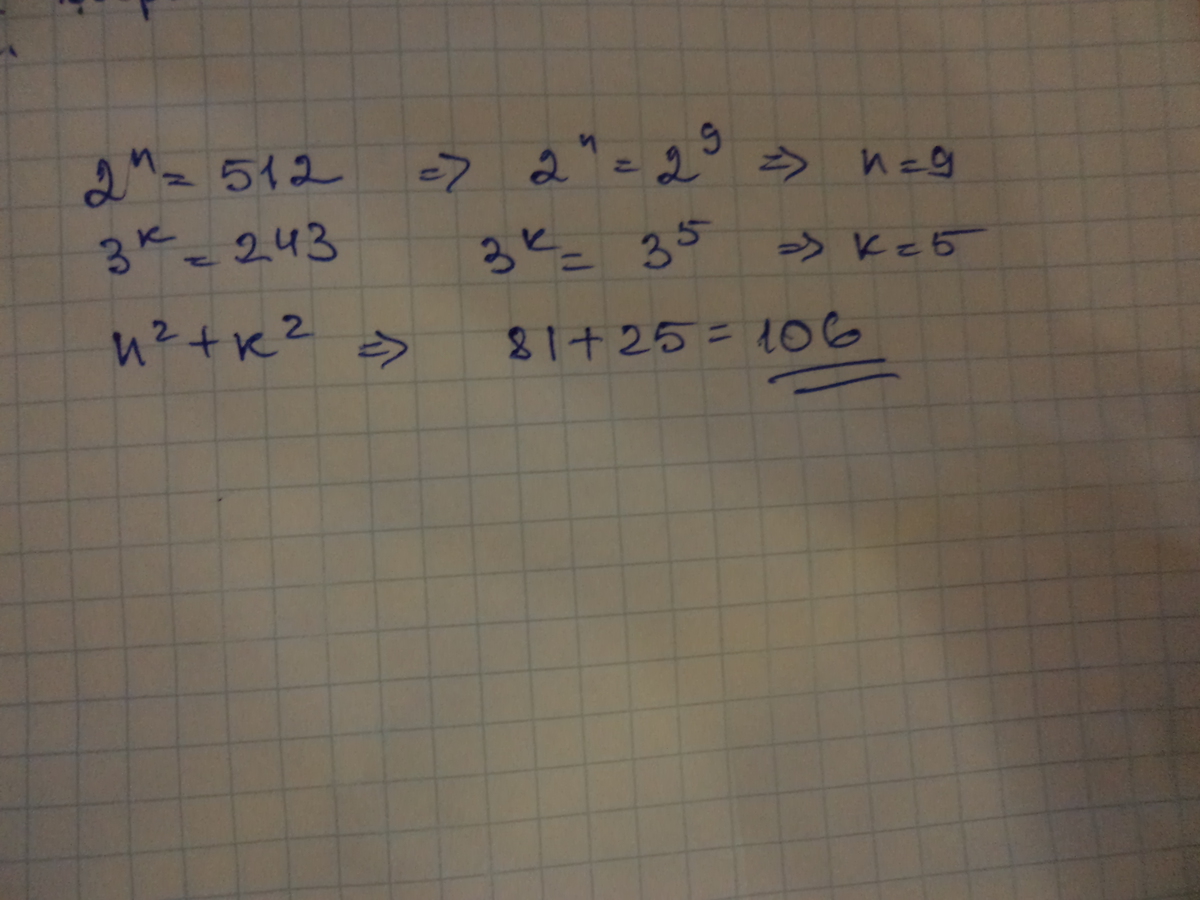 2ⁿ = 512 => 2ⁿ = 2⁹ => n = 9
3ᵏ = 243 3ᵏ = 3⁵ => k = 5
n² + k² => 81 + 25 = 106